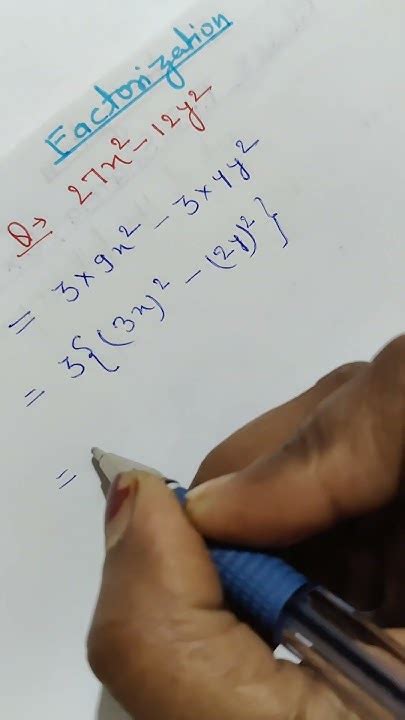 Factorization
Q→ 27x² - 12y²
= 3×9x² - 3×4y²
= 3{(3x)² - (2y)²}
=